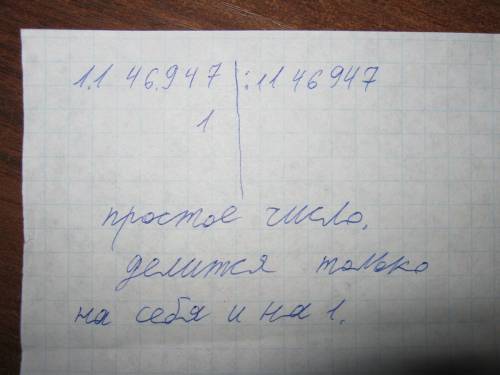 1.1 46.947 | : 11 46947
1
простое число,
делится только
на себя и на 1.